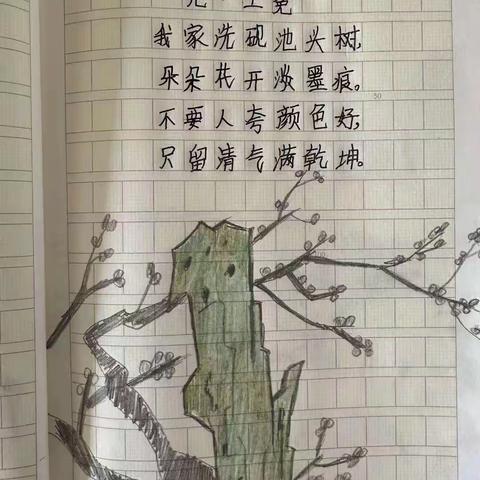 元·王冕
我家洗砚池头树,
朵朵花开淡墨痕。
不要人夸颜色好,
只留清气满乾坤。
50